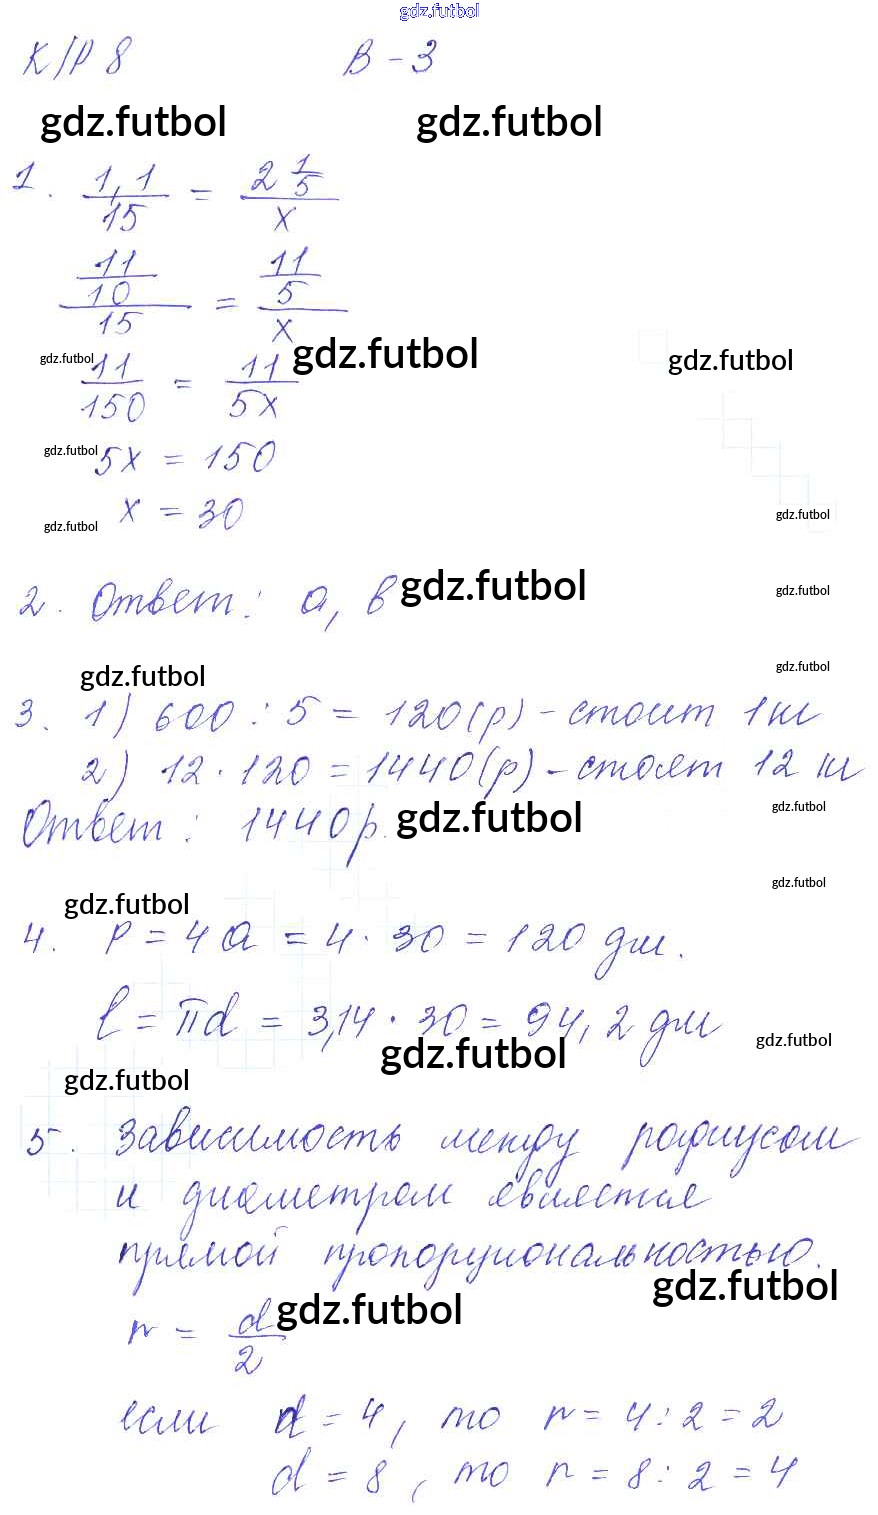 gdz.futbol
К/Р 8 В-3
gdz.futbol gdz.futbol
1. 1,1/15 = 2 1/5 / x
11/10 / 15 = 11/5 / x
gdz.futbol gdz.futbol gdz.futbol
11/150 = 11/5x
gdz.futbol 5x = 150
gdz.futbol x = 30 gdz.futbol
2. Ответ: а, в gdz.futbol gdz.futbol
gdz.futbol gdz.futbol
3. 1) 600 : 5 = 120 (р) - стоит 1 кг
2) 12 · 120 = 1440 (р) - стоят 12 кг
Ответ: 1440 р. gdz.futbol gdz.futbol
gdz.futbol gdz.futbol
4. P = 4a = 4 · 30 = 120 дм.
l = πd = 3,14 · 30 = 94,2 дм
gdz.futbol gdz.futbol
gdz.futbol
5. Зависимость между радиусом
и диаметром является
прямой пропорциональностью.
gdz.futbol
r = d/2 gdz.futbol
если d = 4, то r = 4 : 2 = 2
d = 8, то r = 8 : 2 = 4